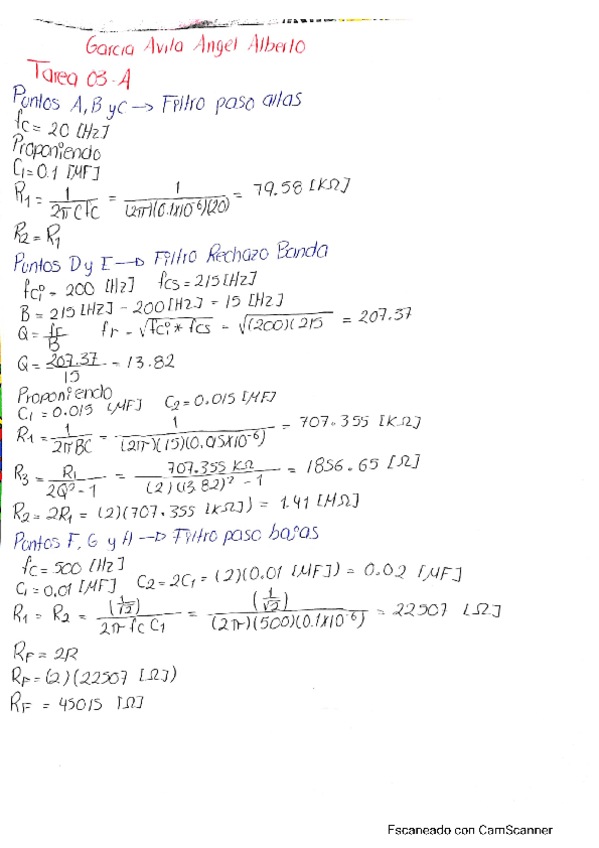 Garcia Avila Angel Alberto
Tarea 03-A
Puntos A, B y C --> Filtro paso altas
fc = 20 [Hz]
Proponiendo
C1 = 0.1 [MF]
R1 = 1/(2π C fc) = 1/((2π)(0.1x10^-6)(20)) = 79.58 [KΩ]
R2 = R1
Puntos D y E --> Filtro Rechazo Banda
fci = 200 [Hz] fcs = 215 [Hz]
B = 215 [Hz] - 200 [Hz] = 15 [Hz]
Q = fr/B fr = √(fci * fcs) = √((200)(215) = 207.37
Q = 207.37/15 = 13.82
Proponiendo
C1 = 0.015 [MF] C2 = 0.015 [MF]
R1 = 1/(2π BC) = 1/((2π)(15)(0.015x10^-6)) = 707.355 [KΩ]
R3 = R1/(2Q² - 1) = 707.355 KΩ/((2)(13.82)² - 1) = 1856.65 [Ω]
R2 = 2R1 = (2)(707.355 [KΩ]) = 1.41 [MΩ]
Puntos F, G y H --> Filtro paso bajas
fc = 500 [Hz]
C1 = 0.01 [MF] C2 = 2C1 = (2)(0.01 [MF]) = 0.02 [MF]
R1 = R2 = (1/√2)/(2π fc C1) = (1/√2)/((2π)(500)(0.1x10^-6) = 22507 [Ω]
RF = 2R
RF = (2)(22507 [Ω])
RF = 45015 [Ω]
Escaneado con CamScanner